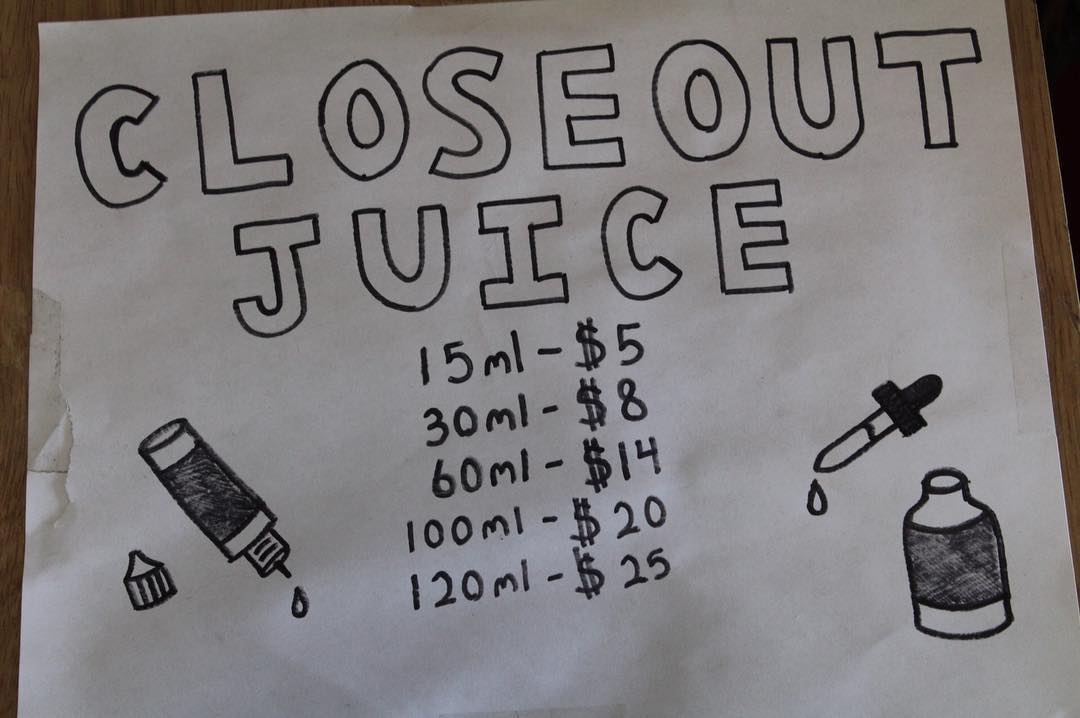 CLOSEOUT
JUICE
15ml - $5
30ml - $8
60ml - $14
100ml - $20
120ml - $25